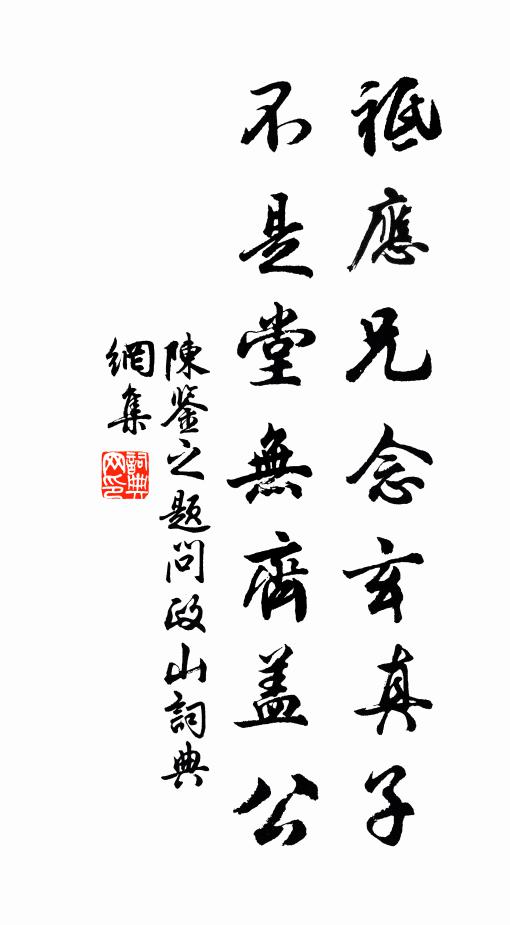 祗應兄念玄真子
不是堂無齊盖公
陳鉴之题問政山詞典
網集
詞典网印